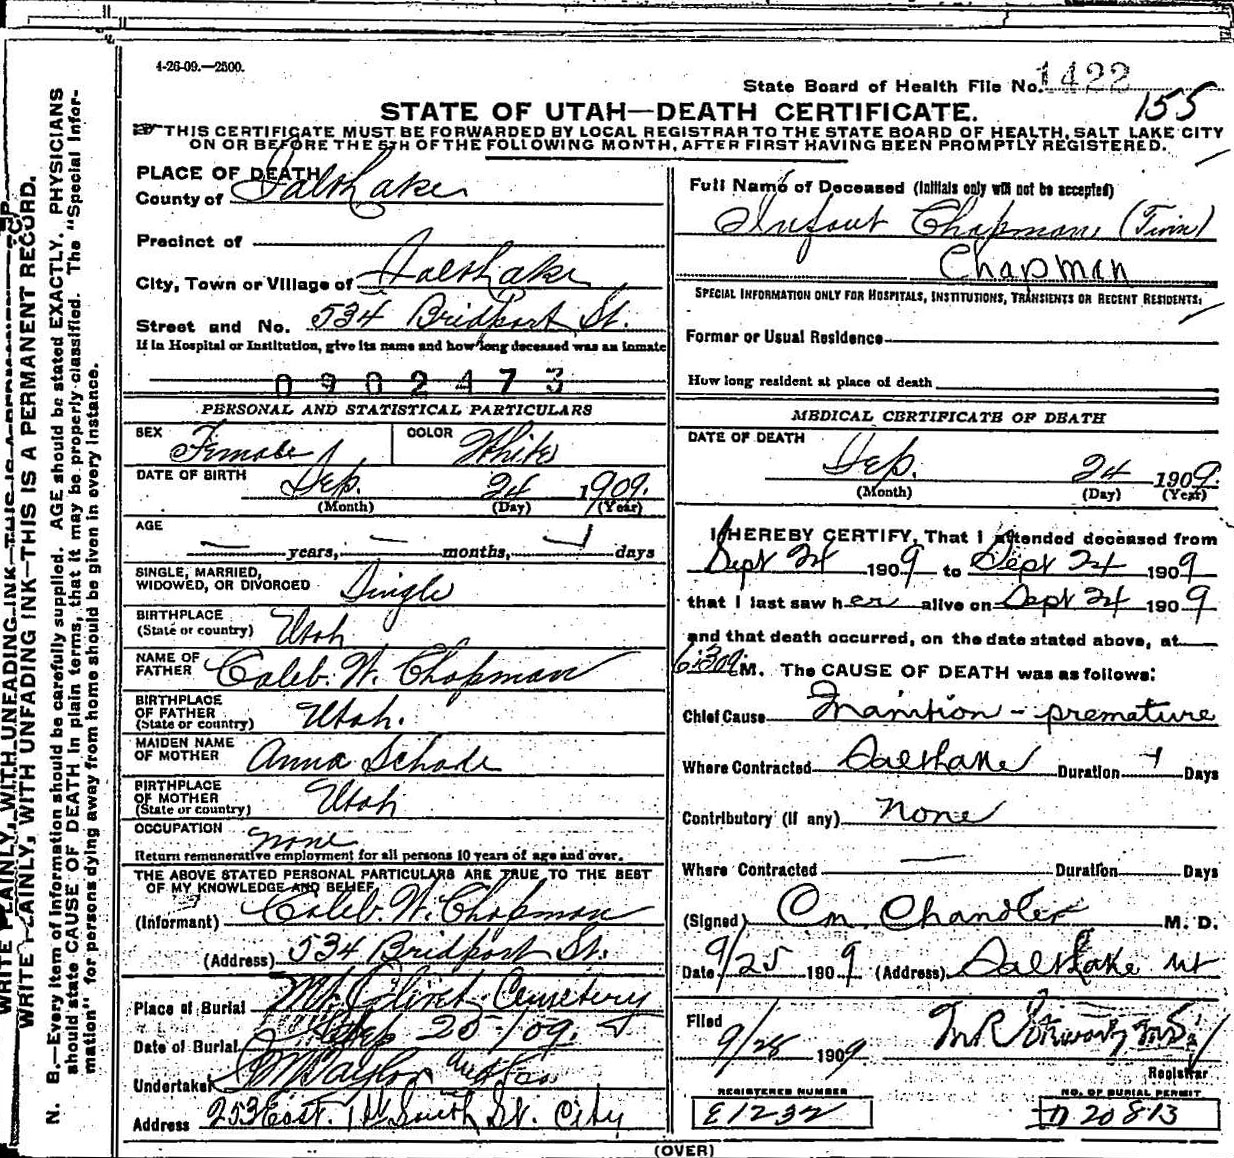 4-26-09.—2500.
State Board of Health File No. 1422
155
STATE OF UTAH—DEATH CERTIFICATE.
THIS CERTIFICATE MUST BE FORWARDED BY LOCAL REGISTRAR TO THE STATE BOARD OF HEALTH, SALT LAKE CITY
ON OR BEFORE THE 5TH OF THE FOLLOWING MONTH, AFTER FIRST HAVING BEEN PROMPTLY REGISTERED.
PLACE OF DEATH
County of Salt Lake
Precinct of
City, Town or Village of Salt Lake
Street and No. 534 Bridport St.
If in Hospital or Institution, give its name and how long deceased was an inmate
0902473
PERSONAL AND STATISTICAL PARTICULARS
SEX Female COLOR White
DATE OF BIRTH Sep. 24 1909.
(Month) (Day) (Year)
AGE
— years, — months, 1 days
SINGLE, MARRIED,
WIDOWED, OR DIVORCED Single
BIRTHPLACE
(State or country) Utah
NAME OF
FATHER Caleb. W. Chapman
BIRTHPLACE
OF FATHER
(State or country) Utah.
MAIDEN NAME
OF MOTHER Anna Schade
BIRTHPLACE
OF MOTHER
(State or country) Utah
OCCUPATION none
Return remunerative employment for all persons 10 years of age and over.
THE ABOVE STATED PERSONAL PARTICULARS ARE TRUE TO THE BEST
OF MY KNOWLEDGE AND BELIEF
(Informant) Caleb. W. Chapman
(Address) 534 Bridport St.
Place of Burial Mt. Olivet Cemetery
Date of Burial Sep 25-/09.
Undertaker Taylor
Address 253 East. 1st South St. City
Full Name of Deceased (Initials only will not be accepted)
Infant Chapman (Twin)
Chapman
SPECIAL INFORMATION ONLY FOR HOSPITALS, INSTITUTIONS, TRANSIENTS OR RECENT RESIDENTS.
Former or Usual Residence
How long resident at place of death
MEDICAL CERTIFICATE OF DEATH
DATE OF DEATH
Sep. 24 1909.
(Month) (Day) (Year)
I HEREBY CERTIFY, That I attended deceased from
Sept 24 1909 to Sept 24 1909
that I last saw her alive on Sept 24 1909
and that death occurred, on the date stated above, at
6:30 M. The CAUSE OF DEATH was as follows:
Chief Cause Inanition - premature
Where Contracted Salt Lake Duration 1 Days
Contributory (if any) None
Where Contracted — Duration Days
(Signed) Chandler M. D.
Date 9/25 1909 (Address) Salt Lake Ut
Filed
9/28 1909
Registrar
REGISTERED NUMBER
E1232
NO. OF BURIAL PERMIT
D 20813
(OVER)
WRITE PLAINLY, WITH UNFADING INK—THIS IS A PERMANENT RECORD.
N. B.—Every item of information should be carefully supplied. AGE should be stated EXACTLY. PHYSICIANS
should state CAUSE OF DEATH in plain terms, that it may be properly classified. The "Special Infor-
mation" for persons dying away from home should be given in every instance.